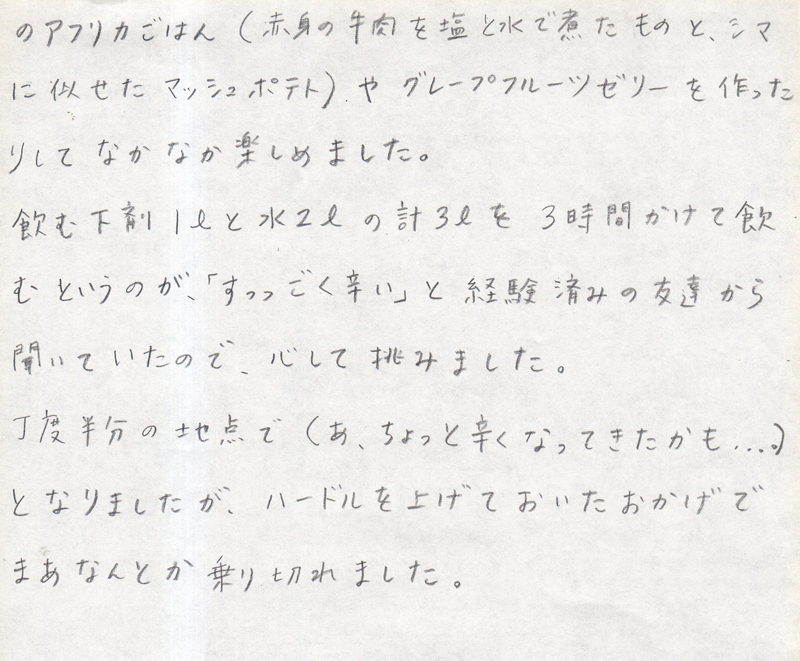 のアフリカごはん(赤身の牛肉を塩と水で煮たものと、シマ
に似せたマッシュポテト)やグレープフルーツゼリーを作った
りしてなかなか楽しめました。
飲む下剤1ℓと水2ℓの計3ℓを3時間かけて飲
むというのが、「すっっごく辛い」と経験済みの友達から
聞いていたので、心して挑みました。
丁度半分の地点で(あ、ちょっと辛くなってきたかも...。)
となりましたが、ハードルを上げておいたおかげで
まあなんとか乗り切れました。